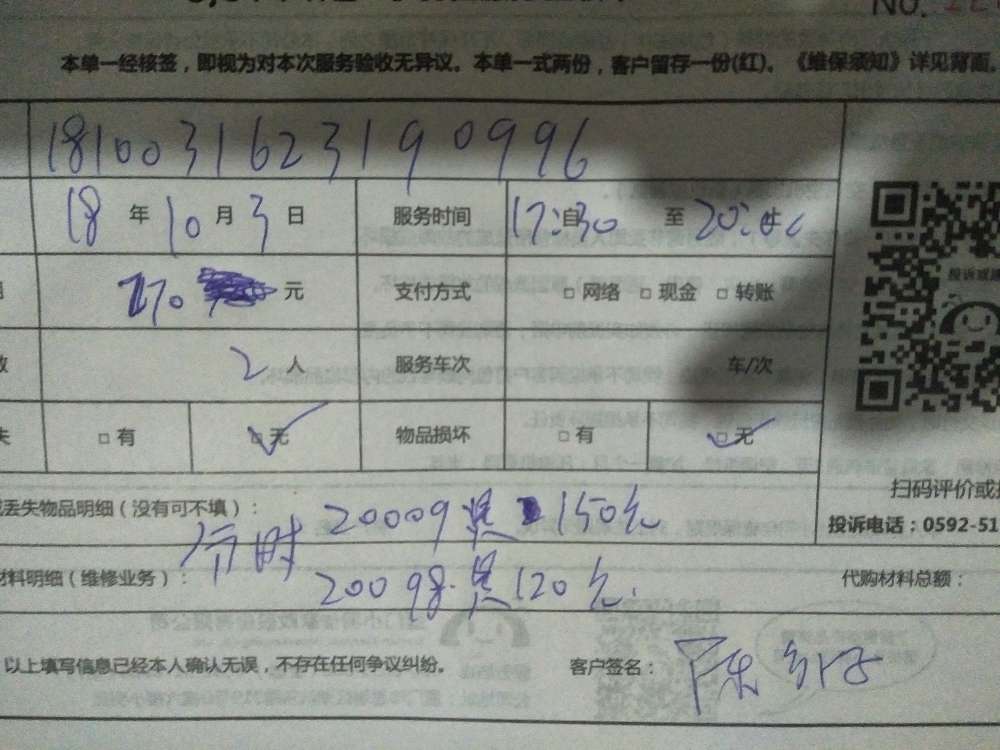 No.
本单一经核签，即视为对本次服务验收无异议。本单一式两份，客户留存一份(红)。《维保须知》详见背面。
1810031623190996
18 年 10 月 3 日 服务时间 17:30 自 至 20:
270 元 支付方式 □ 网络 □ 现金 □ 转账
2 人 服务车次 车/次
□ 有 □ 无 物品损坏 □ 有 □ 无
扫码评价或
丢失物品明细（没有可不填）： 20009 150元
投诉电话：0592-51
材料明细（维修业务）： 20098 120元 代购材料总额：
以上填写信息已经本人确认无误，不存在任何争议纠纷。 客户签名： 陈